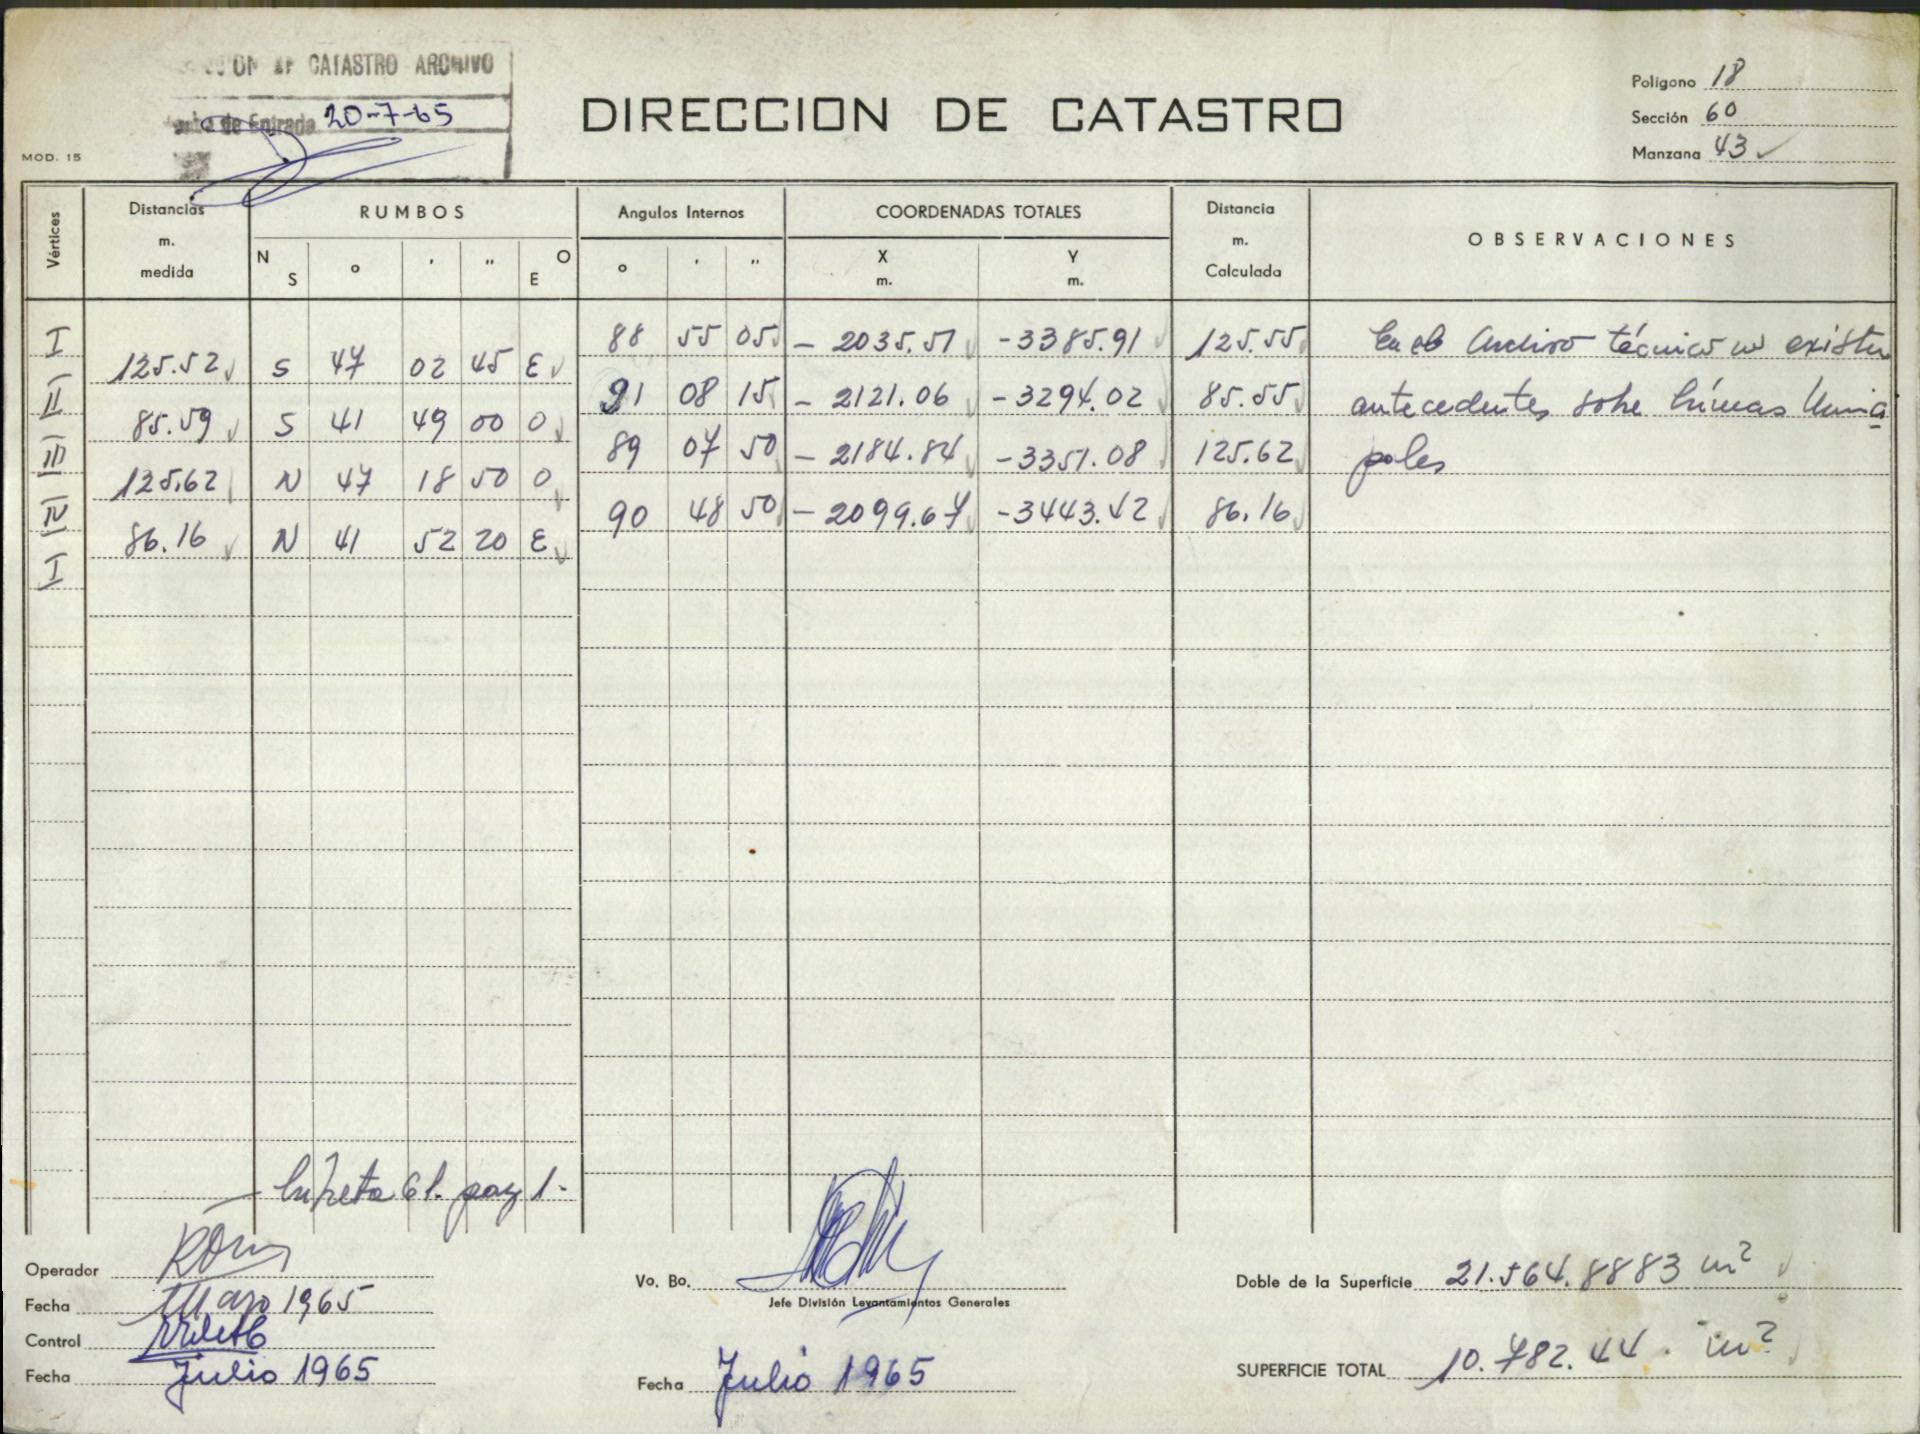 CATASTRO ARCHIVO
de Entrada 20-7-65
MOD. 15
DIRECCION DE CATASTRO
Polígono 18
Sección 60
Manzana 43
Vértices Distancias m. medida RUMBOS Angulos Internos COORDENADAS TOTALES Distancia m. Calculada OBSERVACIONES
N S ° ' " E O ° ' " X m. Y m.
I 88 55 05 - 2035.51 -3385.91 125.55 En el Archivo técnico no existen
125.52 S 47 02 45 E
II 91 08 15 - 2121.06 -3294.02 85.55 antecedentes sobre líneas Munici
85.59 S 41 49 00 O
III 89 07 50 - 2184.84 -3351.08 125.62 pales
125.62 N 47 18 50 O
IV 90 48 50 - 2099.67 -3443.12 86.16
86.16 N 41 52 20 E
I
Libreta 61. pag 1.
Operador
Fecha Mayo 1965
Control
Fecha Julio 1965
Vo. Bo.
Jefe División Levantamientos Generales
Fecha Julio 1965
Doble de la Superficie 21.564.8883 m²
SUPERFICIE TOTAL 10.782.44 m²